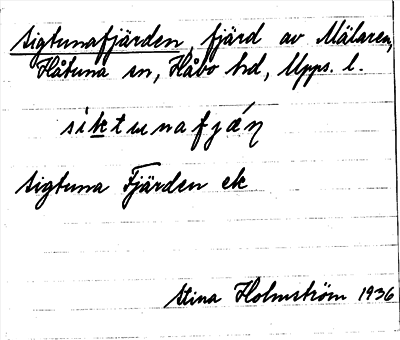 Sigtunafjärden, fjärd av Mälaren,
Håtuna sn, Håbo hd, Upps. l.
siktunafjǽṇ
Sigtuna Fjärden ek
Stina Holmström 1936